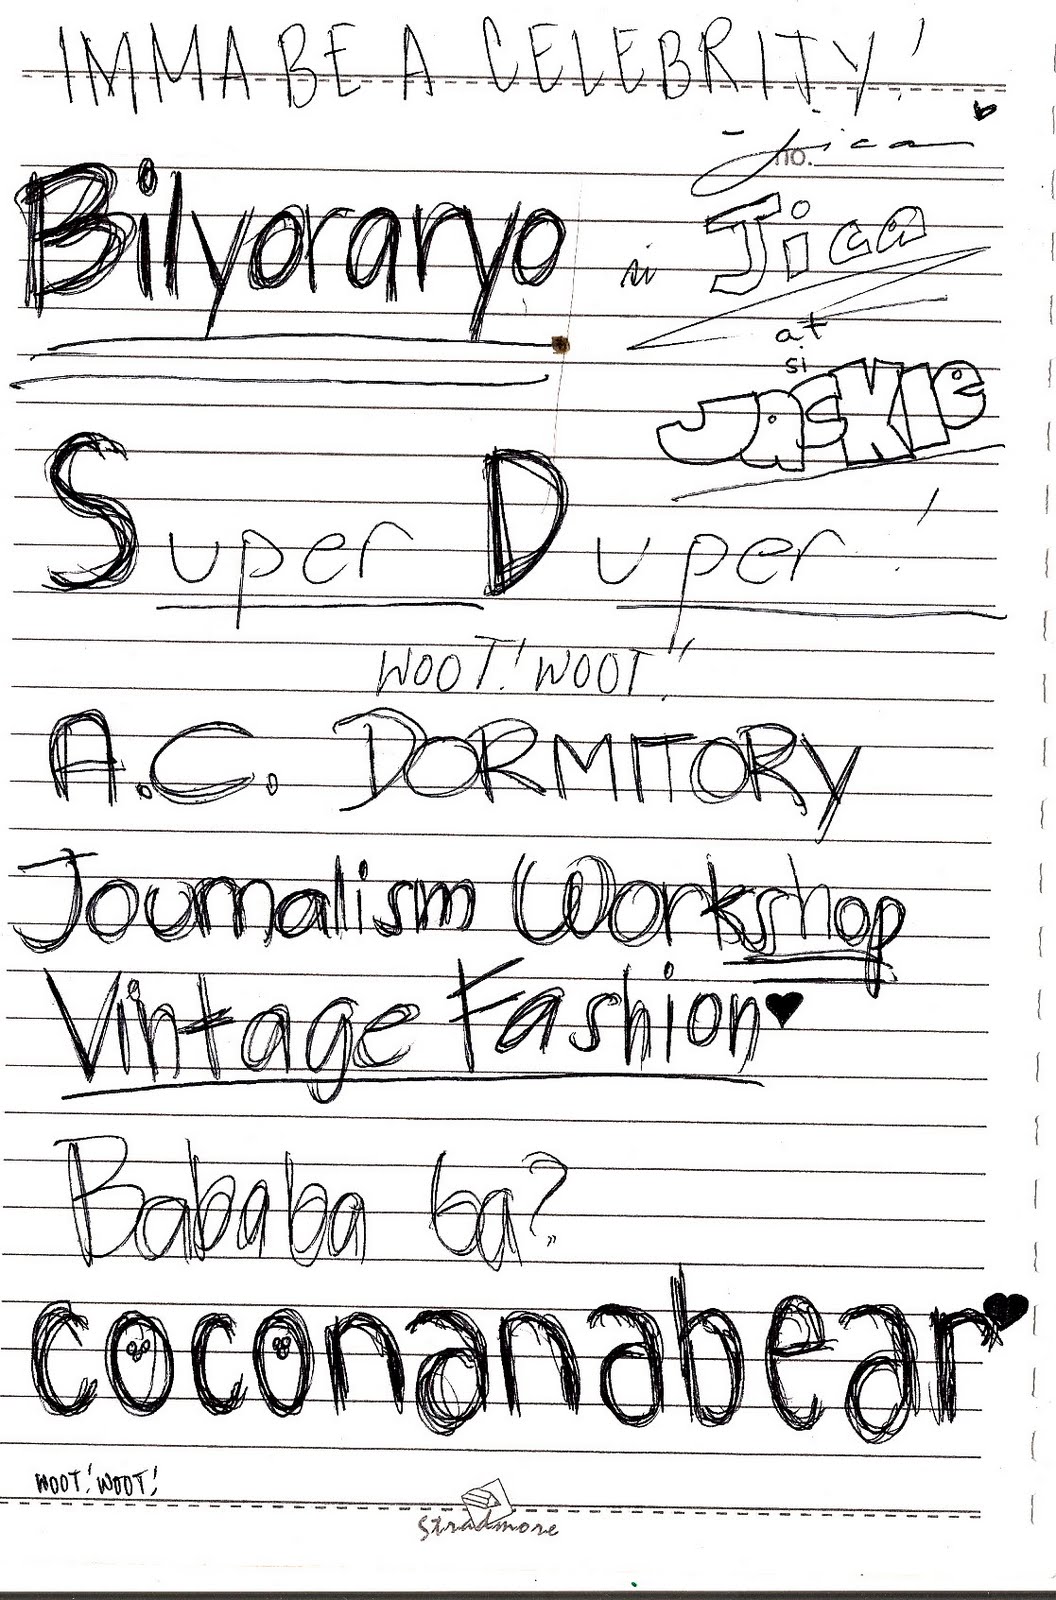 IMMA BE A CELEBRITY!
Jica
no.
Bilyoraryo si Jica
at
si
JACKIE
Super Duper!
WOOT! WOOT!
A.C. DORMITORY
Journalism Workshop
Vintage Fashion
Bababa ba?
coconanabear
WOOT! WOOT!
Stradmore